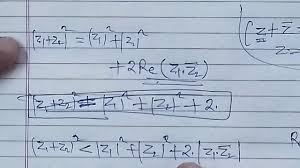 |z₁+z₂|² = |z₁|²+|z₂|²
+2Re(z₁.z̄₂)
|z₁+z₂|² ≠ |z₁|²+|z₂|²+2.
|z₁+z₂|² < |z₁|²+|z₂|²+2.|z₁.z̄₂|
(z+z̄=
z=